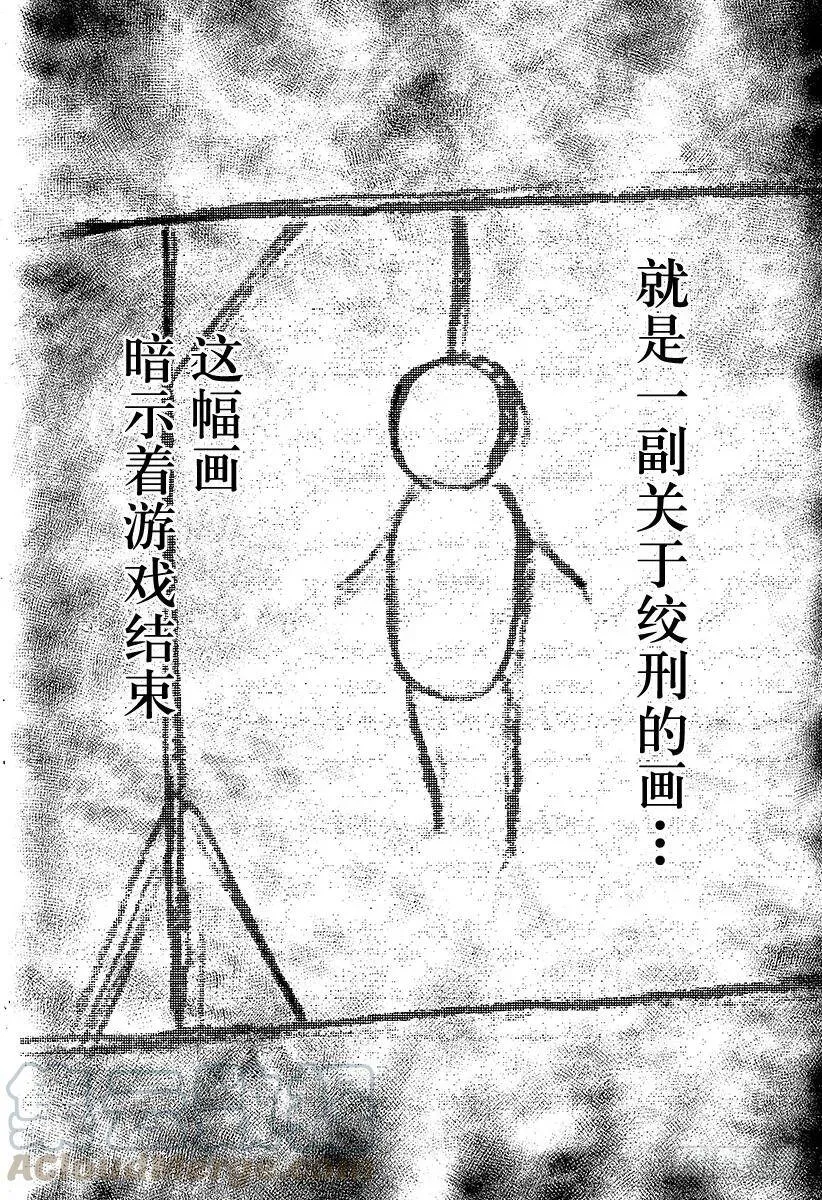 就是一副关于绞刑的画…
这幅画
暗示着游戏结束
ACloudMerge.com